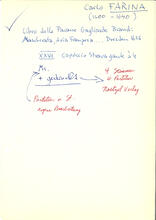 Carlo FARINA
(1600 - 1640)
Libro delle Pavane Gagliarde Brandi:
Mascherata, Aria Franzesa ... Dresden 1626
XXVI Capriccio Stravagante à 4
Ms.
+ gedruckt
4 Stimmen
Partitur
Verlag
Partitur + St.
Bearbeitung